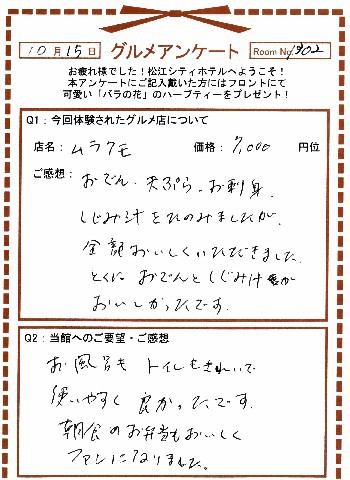 10月15日 グルメアンケート Room No. 1302
お疲れ様でした!松江シティホテルへようこそ!
本アンケートにご記入戴いた方にはフロントにて
可愛い「バラの花」のハーブティーをプレゼント!
Q1:今回体験されたグルメ店について
店名:ムラクモ 価格:7,000 円位
ご感想:おでん、天ぷら、お刺身、
しじみ汁をたのみましたが、
全部おいしくいただきました。
とくに おでんとしじみ汁が
おいしかったです。
Q2:当館へのご要望・ご感想
お風呂も トイレもきれいで
使いやすく 良かったです。
朝食のお弁当もおいしく
ファンになりました。